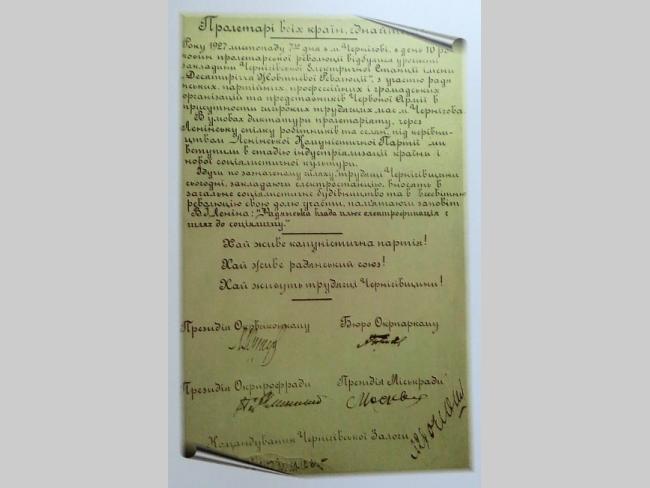 Пролетарі всіх країн, єднайте
Року 1927 листопаду 7го дня в м Чернігові, в день 10 ро-
ковин пролетарської революції відбулися урочисті
закладини Чернігівської Електричної Станції імени
„Десятиріччя Жовтневої Революції", з участю радя
нських, партійних, професійних і громадських
організацій та представників Червоної Армії в
присутности широких трудящих мас м. Чернігова.
В умовах диктатури пролетаріяту, через
Ленінську спілку робітників та селян, під керівни-
цтвом Ленінської Комуністичної Партії ми
вступили в стадію індустріялізації країни і
нової соціялістичної культури.
Ідучи по зазначеному шляху, трудящі Чернігівщини
сьогодні, закладаючи електростанцію, вносять в
загальне соціялістичне будівництво та в всесвітню
революцію свою долю участи, памятаючи заповіт
В.І.Леніна: "Радянська влада плюс електрофікація є
шлях до соціялізму."
Хай живе комуністична партія!
Хай живе радянський союз!
Хай живуть трудящі Чернігівщини!
Президія Окрвиконкому Бюро Окрпаркому
Президія Окрпрофради Президія Міськради
Командування Чернігівської Залоги